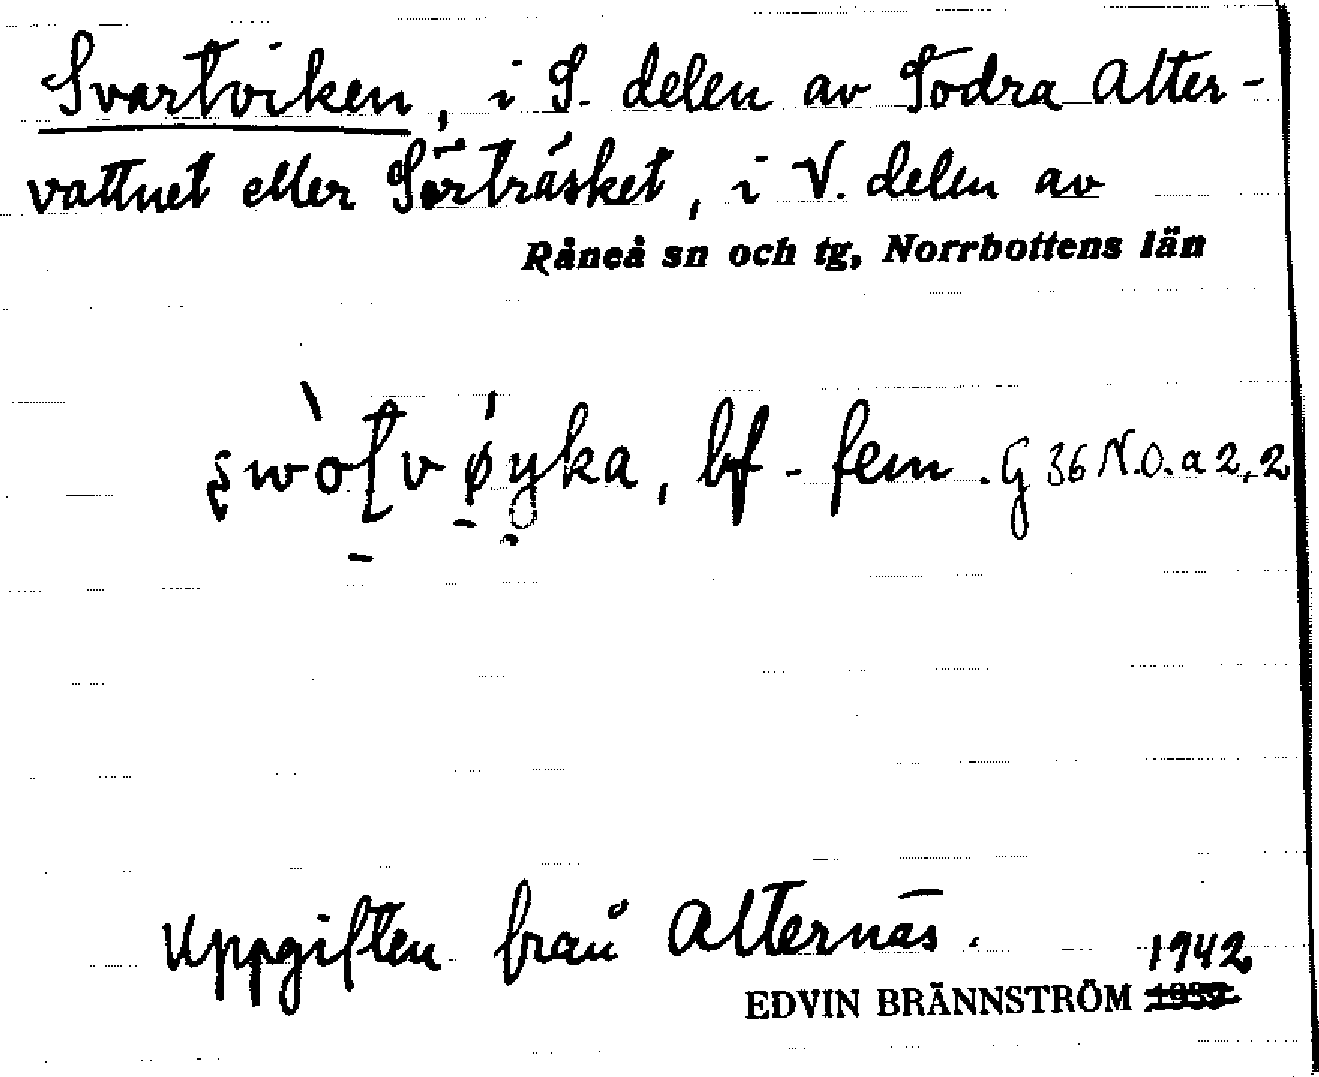 Svartviken, i S. delen av Södra Alter-
vattnet eller Sörträsket, i V. delen av
Råneå sn och tg, Norrbottens län
bf - fem. G 36 N.O. a 2, 2
Uppgiften från Alternäs.
1942
EDVIN BRÄNNSTRÖM